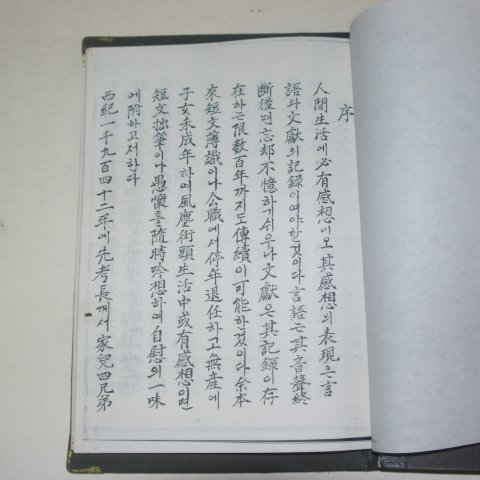 序
人間生活에必有感想이오其感想의表現은言
語와文獻의記錄이여야할것이다言語는其音聲終
斷後면忘却不憶하기쉬우나文獻은其記錄이存
在하는限数百年까지도傳續이可能한것이다余本
來短文薄識이나公職에서停年退任하고無産에
子女未成年하여風塵街頭生活中或有感想이면
短文拙筆이나愚懷를隨時吟想하여自慰의一味
에附하고저한다
西紀一千九百四十二年에先考長께서家兒四兄弟